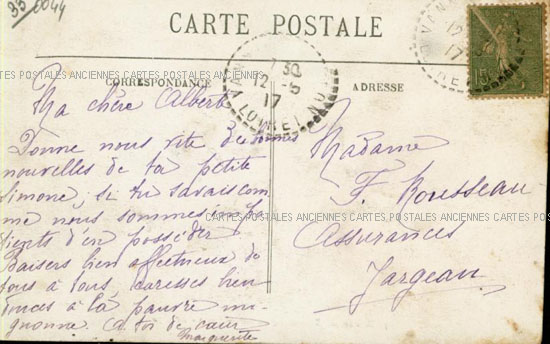 35 0044
CARTE POSTALE
CORRESPONDANCE
ADRESSE
CARTES POSTALES ANCIENNES CARTES POSTALES ANCIENNES CARTES POSTALES ANCIENNES CARTES POSTALES
7 30
12 - 5
17
LOIRET
12
17
15
Ma chère Alberte
Donne nous vite de bonnes
nouvelles de ta petite
Simone, si tu savais com
me nous sommes impa
tients d'en posséder
Baisers bien affectueux de
tous à tous, caresses bien
douces à la pauvre mi
gnonne. A toi de cœur
Marguerite
Madame
F. Rousseau
Assurances
Jargeau
CARTES POSTALES ANCIENNES CARTES POSTALES ANCIENNES CARTES POSTALES